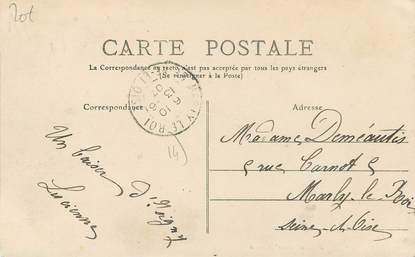 Rol
CARTE POSTALE
La Correspondance au recto, n'est pas acceptée par tous les pays étrangers
(Se renseigner à la Poste)
Correspondance
Adresse
LE ROI
(14)
Un baiser
d'Hoigny
Lucienne
Madame Deméautis
5 rue Carnot 5
Marly le Roi
Seine-et-Oise